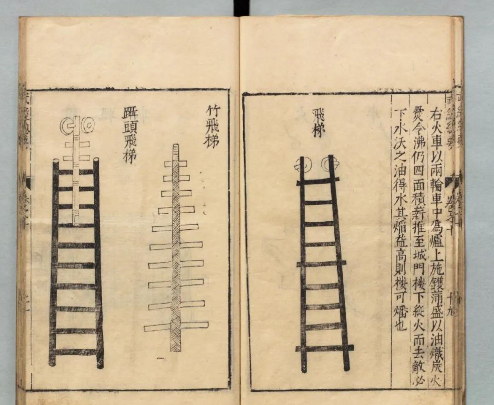 右火車以兩輪車中為爐上施鑊滿盛以油熾炭火
爨令沸仍四面積薪推至城門樓下縱火而去敵必
下水沃之油得水其焰益高則樓可燔也
飛梯
竹飛梯
躡頭飛梯